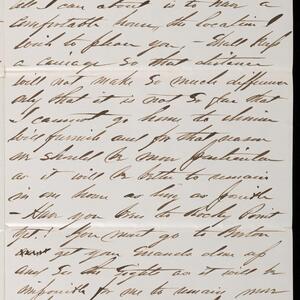 all I care about is to have a
comfortable house, the location I
wish to please you, - Shall keep
a carriage so that distance
will not make so much difference
only that it is not so far that
I cannot go home to dinner
will furnish and for that reason
we should be more particular
as it will be better to remain
in one house as long as possible
- Have you been to Rocky Point
yet? You must go to Boston
get your errands done up
any so the as it will be
impossible for me to remain more